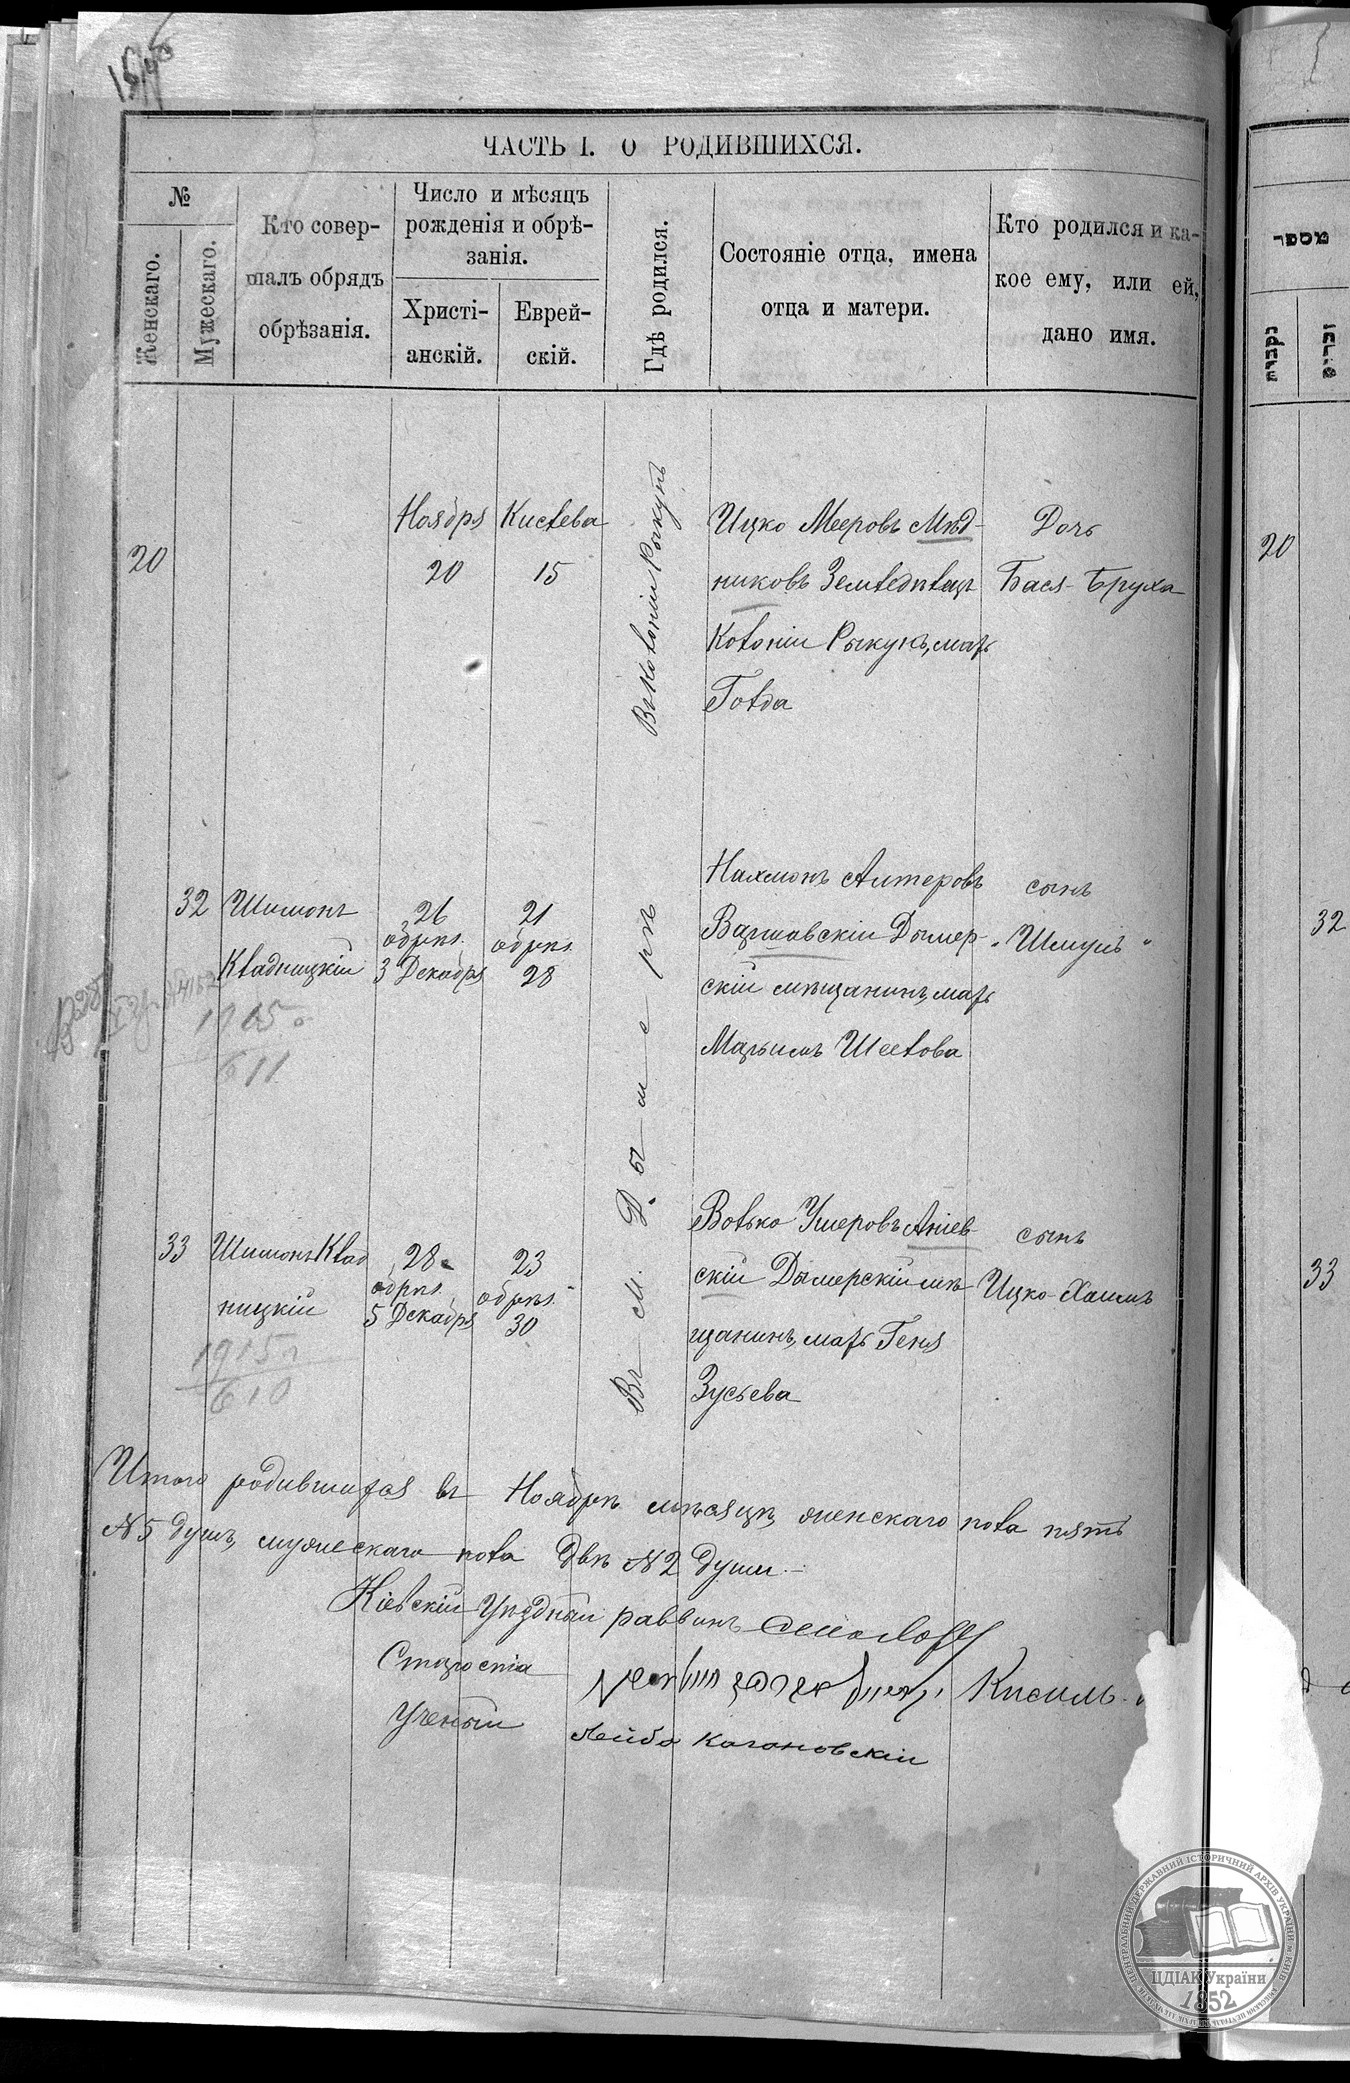 ЧАСТЬ I. О РОДИВШИХСЯ.
№
Женскаго.
Мужескаго.
Кто совер-
шалъ обрядъ
обрѣзанія.
Число и мѣсяцъ
рожденія и обрѣ-
занія.
Христі-
анскій.
Еврей-
скій.
Гдѣ родился.
Состояніе отца, имена
отца и матери.
Кто родился и ка-
кое ему, или ей,
дано имя.
20
Ноября
20
Кислева
15
Въ Колоніи Рыкунъ
Ицко Мееровъ Мѣд-
никовъ Земледѣлецъ
Колоніи Рыкунь, мать
Голда
Дочь
Бася-Бруха
32
Шимонъ
Кладницкій
26
обрѣз.
3 Декабря
21
обрѣз.
28
Въ м. Дымерѣ
Нахмонъ Алтеровъ
Варшавскій Дымер-
скій мѣщанинъ, мать
Марьимъ Шеелова
сынъ
„Шмуль"
611
33
Шимонъ Клад
ницкій
28
обрѣз.
5 Декабря
23
обрѣз.
30
Волько Ушеровъ Аніев-
скій Дымерскій мѣ-
щанинъ, мать Геня
Зусьева
сынъ
Ицко-Хаимъ
1915г
610
Итого родившихся въ Ноябрѣ мѣсяцѣ, женскаго пола пять
№5 душъ, мужескаго пола двѣ №2 души.-
Кіевскій Уѣздный раввинъ
Староста
Кисиль
Ученый Лейба Кагановскій
מספר
נקבות
זכרים
20
32
33
ЦЕНТРАЛЬНИЙ ДЕРЖАВНИЙ ІСТОРИЧНИЙ АРХІВ УКРАЇНИ, м. КИЇВ
ЦДІАК України
1852